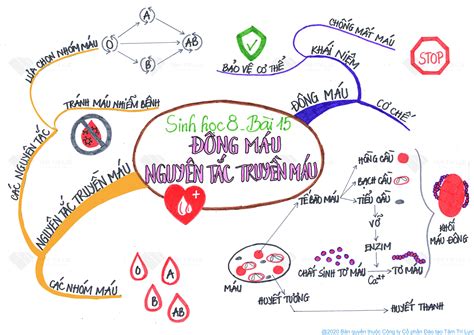 Sinh học 8 - Bài 15
ĐÔNG MÁU
NGUYÊN TẮC TRUYỀN MÁU
ĐÔNG MÁU
KHÁI NIỆM
CHỐNG MẤT MÁU
STOP
BẢO VỆ CƠ THỂ
CƠ CHẾ
MÁU
TẾ BÀO MÁU
HỒNG CẦU
BẠCH CẦU
TIỂU CẦU
VỠ
ENZIM
CHẤT SINH TƠ MÁU
Ca²⁺
TƠ MÁU
KHỐI
MÁU ĐÔNG
HUYẾT TƯƠNG
HUYẾT THANH
NGUYÊN TẮC TRUYỀN MÁU
CÁC NGUYÊN TẮC
LỰA CHỌN NHÓM MÁU
O
A
B
AB
TRÁNH MÁU NHIỄM BỆNH
CÁC NHÓM MÁU
O
A
B
AB
@2020 Bản quyền thuộc Công ty Cổ phần Đào tạo Tâm Trí Lực